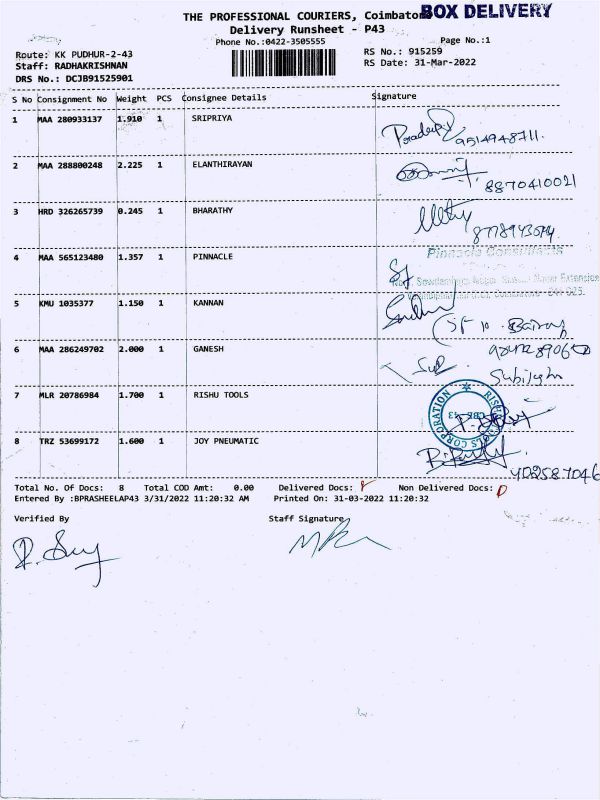 THE PROFESSIONAL COURIERS, Coimbatore BOX DELIVERY
Delivery Runsheet - P43
Phone No.:0422-3505555 Page No.:1
Route: KK PUDHUR-2-43 RS No.: 915259
Staff: RADHAKRISHNAN RS Date: 31-Mar-2022
DRS No.: DCJB91525901
S No Consignment No Weight PCS Consignee Details Signature
1 MAA 280933137 1.910 1 SRIPRIYA
9514948711.
2 MAA 288800248 2.225 1 ELANTHIRAYAN
8870410021
3 HRD 326265739 0.245 1 BHARATHY
4 MAA 565123480 1.357 1 PINNACLE
Pinnacle Consultants
5 KMU 1035377 1.150 1 KANNAN
6 MAA 286249702 2.000 1 GANESH
7 MLR 20786984 1.700 1 RISHU TOOLS
RISHU TOOLS CORPORATION
CBE-43
8 TRZ 53699172 1.600 1 JOY PNEUMATIC
Total No. Of Docs: 8 Total COD Amt: 0.00 Delivered Docs: 8 Non Delivered Docs: 0
Entered By :BPRASHEELAP43 3/31/2022 11:20:32 AM Printed On: 31-03-2022 11:20:32
Verified By Staff Signature